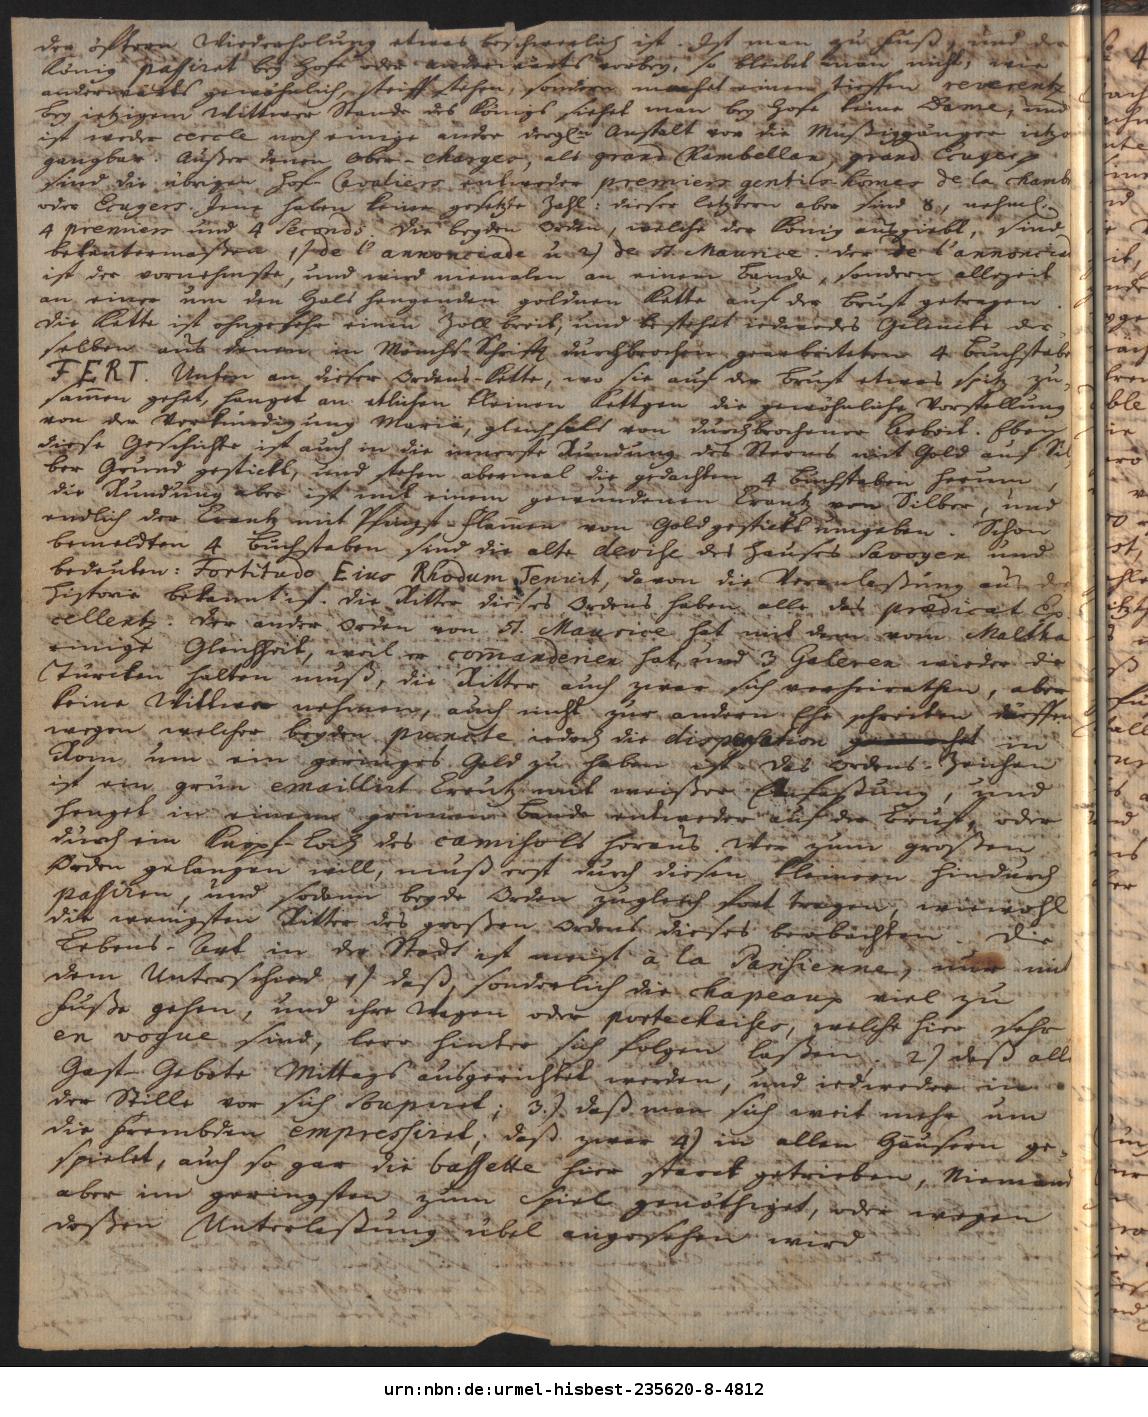 der öfftern Wiederholung etwas beschwerlich ist. Ist man zu Fuß, und der
König passiret bey Hofe oder anderwerts vorbey, so bleibet man nicht, wie
anderwerts gewöhnlich, steiff stehen, sondern machet einen tieffen reverentz
bey ietzigem Wittwer Stande des Königs siehet man bey Hofe keine Dame, und
ist weder cercle noch einige ander dergl. Anstalt vor die Müßiggänger itzo
gangbar. Außer denen Ober-charges, als grand Chambellan, grand Ecuyer p
sind die übrigen Hof-Cavaliers entweder premiers gentils-homes de la chamb
oder Ecuyers. Jene haben keine gesetzte Zahl: dieser letztern aber sind 8, nehml.
4 premiers und 4 seconds. Die beyden Orden, welche der König ausgiebt, sind
bekantermaßen 1) de l'annonciade u. 2) de St. Maurice. der de l'annoncia
ist der vornehmste, und wird niemalen an einem Bande, sondern allezeit
an einer um den Hals hengenden goldnen Kette auf der Brust getragen.
Die Kette ist ohngefehr einen Zoll breit, und bestehet iedwedes Gelencke der-
selben aus denen in Mönchs-Schrifft durchbrochen gearbeiteten 4 Buchstabe
FERT. Unten an dieser Ordens-Kette, wo sie auf der Brust etwas spitz zu-
samen gehet, hanget an etlichen kleinen Kettgen die gewöhnliche Vorstellung
von der Verkündigung Mariä, gleichfals von durchbrochener Arbeit. Eben
diese Geschichte ist auch in die innerste Rundung des Sterns mit Gold auf Sil-
ber Grund gestickt, und stehen abermal die gedachten 4 Buchstaben herum,
die Rundung aber ist mit einem gewundenen Crantz von Silber, und
endlich der Crantz mit Pfingst-Flamen von Gold gestickt umgeben. Schon
bemeldten 4 Buchstaben sind die alte devise des Hauses Savoyen und
bedeuten: Fortitudo Eius Rhodum Tenuit, davon die Veranlaßung aus der
Historie bekannt ist. Die Ritter dieses Ordens haben alle das praedicat Ex-
cellentz. Der andere Orden von St. Maurice hat mit dem vom Maltha
einige Gleichheit, weil er comanderien hat, und 3 Galeren wieder die
Türcken halten muß, die Ritter auch zwar sich verheirathen, aber
keine Wittwe nehmen, auch nicht zur andern Ehe schreiten dürffen
wegen welcher beyden puncte iedoch die dispensation in
Rom um ein geringes Geld zu haben ist. Das Ordens-Zeichen
ist ein grün emaillirt Creutz mit weißer Einfaßung, und
henget in einem grünen Bande entweder auf der Brust, oder
durch ein Knopf-Loch des camisols heraus. Wer zum großen
Orden gelangen will, muß erst durch diesen kleinern hindurch
passiren, und sodann beyde Orden zugleich fort tragen, wiewohl
die wenigsten Ritter des großen Ordens dieses beobachten. Die
Lebens-Art in der Stadt ist meist à la Parisienne, nur mit
dem Unterschied 1) daß, sonderlich die chapeaux viel zu
Fuße gehen, und ihre Wagen oder portechaises, welche hier sehr
en vogue sind, leer hinter sich folgen laßen. 2) daß alle
Gast-Gebote Mittags ausgerichtet werden, und iedweder in
der Stille vor sich soupiret; 3.) daß man sich weit mehr um
die Frembden empressiret; daß zwar 4) in allen Häusern ge-
spielet, auch so gar die bassette hier starck getrieben, Niemand
aber im geringsten zum Spiel genöthiget, oder wegen
deßen Unterlaßung übel angesehen wird
urn:nbn:de:urmel-hisbest-235620-8-4812